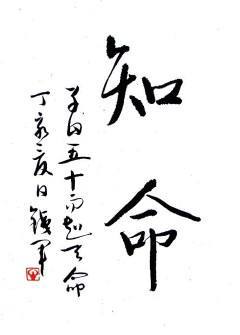 知命
子曰五十而知天命
丁亥夏日鐵军